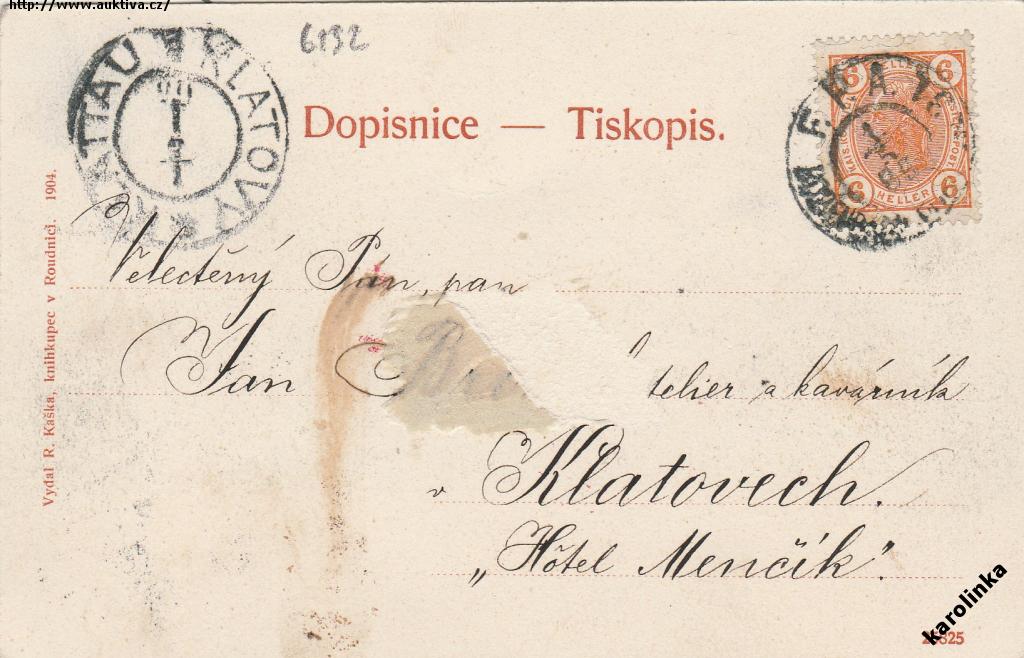 http://www.auktiva.cz/
6132
KLATTAU * KLATOVY *
Dopisnice — Tiskopis.
6 HELLER 6
6 HELLER 6
Vydal R. Kaška, knihkupec v Roudnici. 1904.
Velectěný Pán, pan
Jan
telier a kavárník
v Klatovech.
„Hôtel Menčík".
karolinka